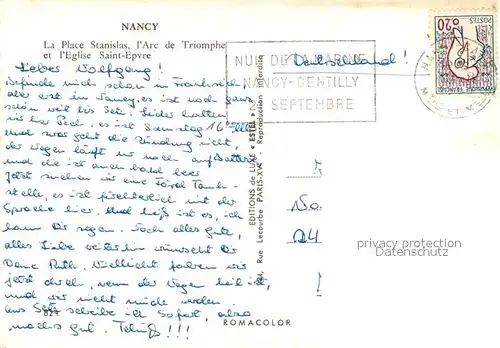 NANCY
La Place Stanislas, l'Arc de Triomphe
et l'Eglise Saint-Epvre
Lieber Wolfgang!
Befinde mich schon in Frankreich
aber erst in Nancy, es ist noch ganz
schön weit bis Leider hatten
wir hier Pech, es ist Samstag 16
und zwar geht die Zündung nicht,
der Wagen läuft nur noch auf Batterie
und die ist auch bald leer
jetzt suchen wir eine Ford Tank-
stelle, es ist fürchterlich mit der
Sprache hier. Und heiß ist es, ich
kann Dir sagen. Noch alles gute,
alles Liebe weiterhin wünscht Dir
Deine Ruth. Vielleicht fahren wir
jetzt durch, wenn der Wagen heil ist,
und wir nicht müde werden.
aus schreibe ich sofort, also
machs gut. Tschüß!!!
NUIT DE
NANCY-GENTILLY
SEPTEMBRE
Deutschland!
POSTES
0,20
EDITIONS de LUXE "ESTEL"
Rue Lecourbe PARIS-XV - Reproduction interdite
24
privacy protection
Datenschutz
ROMACOLOR